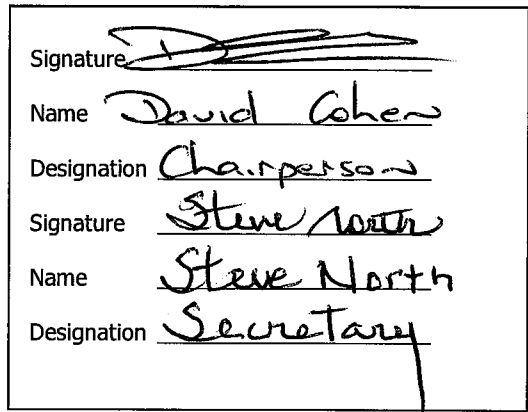 Signature
Name David Cohen
Designation Chairperson
Signature Steve North
Name Steve North
Designation Secretary